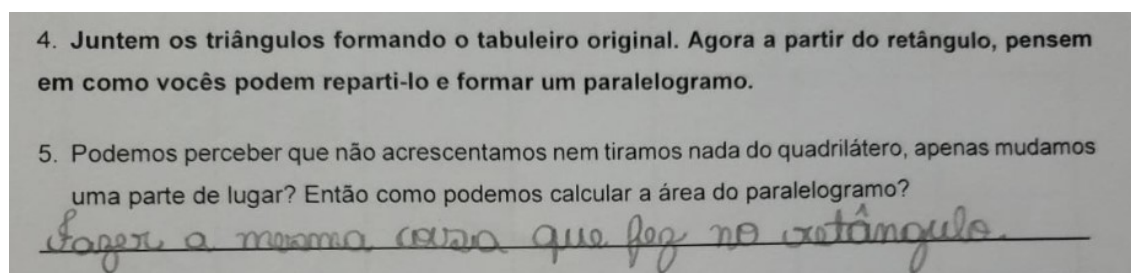 4. Juntem os triângulos formando o tabuleiro original. Agora a partir do retângulo, pensem
em como vocês podem reparti-lo e formar um paralelogramo.
5. Podemos perceber que não acrescentamos nem tiramos nada do quadrilátero, apenas mudamos
uma parte de lugar? Então como podemos calcular a área do paralelogramo?
Fazer a mesma coisa que fez no retângulo.